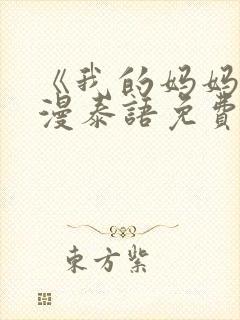 《我的妈妈
漫泰語免費
東方紫